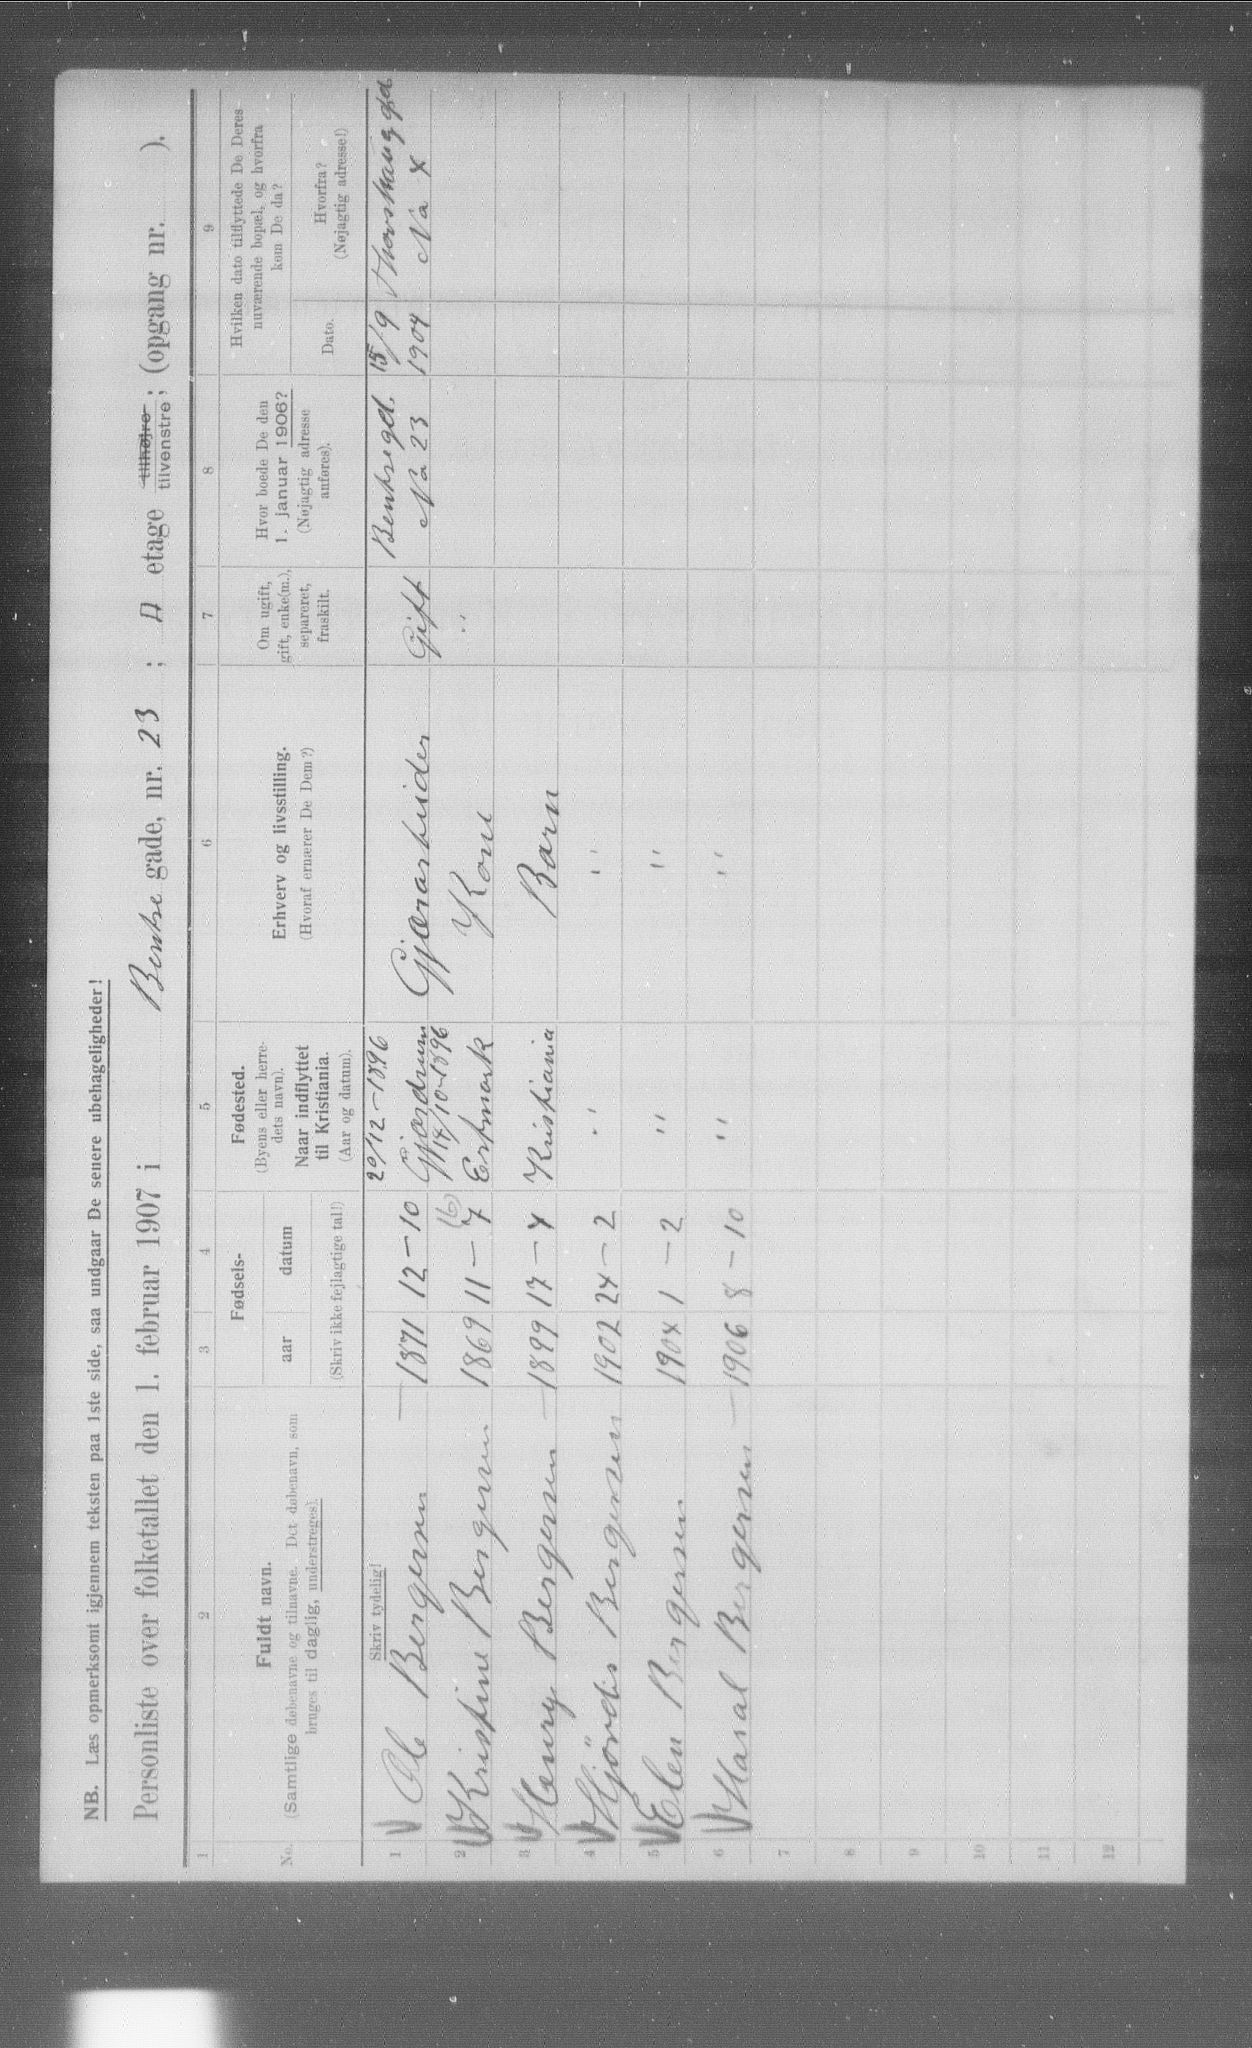 NB. Læs opmerksomt igjennem teksten paa 1ste side, saa undgaar De senere ubehageligheder!
Personliste over folketallet den 1. februar 1907 i Bentse gade, nr. 23 ; II etage tilhøjre tilvenstre ; (opgang nr. ).
1 2 3 4 5 6 7 8 9
No.
Fuldt navn.
(Samtlige døbenavne og tilnavne. Det døbenavn, som
bruges til daglig, understreges).
Fødsels-
aar datum
(Skriv ikke fejlagtige tal!)
Fødested.
(Byens eller herre-
dets navn).
Naar indflyttet
til Kristiania.
(Aar og datum).
Erhverv og livsstilling.
(Hvoraf ernærer De Dem?)
Om ugift,
gift, enke(m.),
separeret,
fraskilt.
Hvor boede De den
1. januar 1906?
(Nøjagtig adresse
anføres).
Hvilken dato tilflyttede De Deres
nuværende bopæl, og hvorfra
kom De da?
Dato.
Hvorfra?
(Nøjagtig adresse!)
Skriv tydelig!
20/12-1896 Bentsegd. 15/9
1 Ole Bergersen 1871 12-10 Gjærdrum Gift No 23 1904
14/10-1896
2 Kristine Bergersen 1869 11-7 Kone "
3 Henry Bergersen 1899 17-4 Kristiania Barn
4 Hjördis Bergersen 1902 24-2 " "
5 Elen Bergersen 1904 1-2 " "
6 Haral Bergersen 1906 8-10 " "
7
8
9
10
11
12